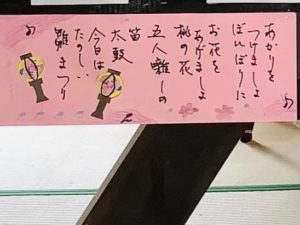 あかりを
つけましょ
ぼんぼりに
お花を
あげましょ
桃の花
五人囃しの
笛
太鼓
今日は
たのしい
雛まつり